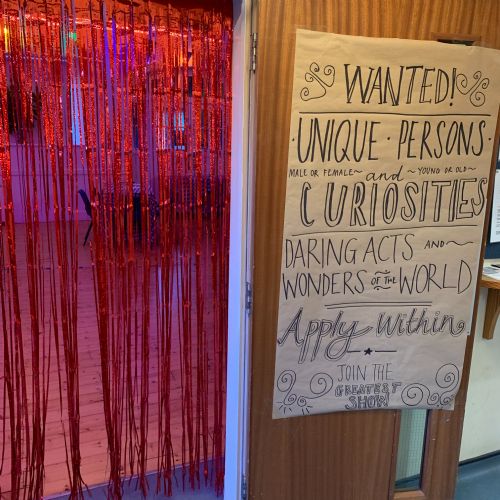 WANTED!
·UNIQUE·PERSONS·
MALE OR FEMALE~ and ~YOUNG OR OLD~
CURIOSITIES
DARING ACTS AND~
WONDERS OF THE WORLD
Apply Within
JOIN THE
GREATEST
SHOW